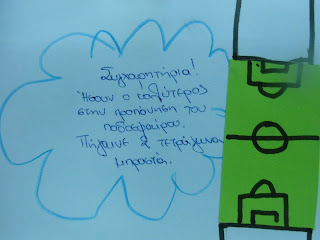 Συγχαρητήρια!
Ήσουν ο καλύτερος
στην προπόνηση του
ποδοσφαίρου.
Πήγαινε 2 τετράγωνα
μπροστά.